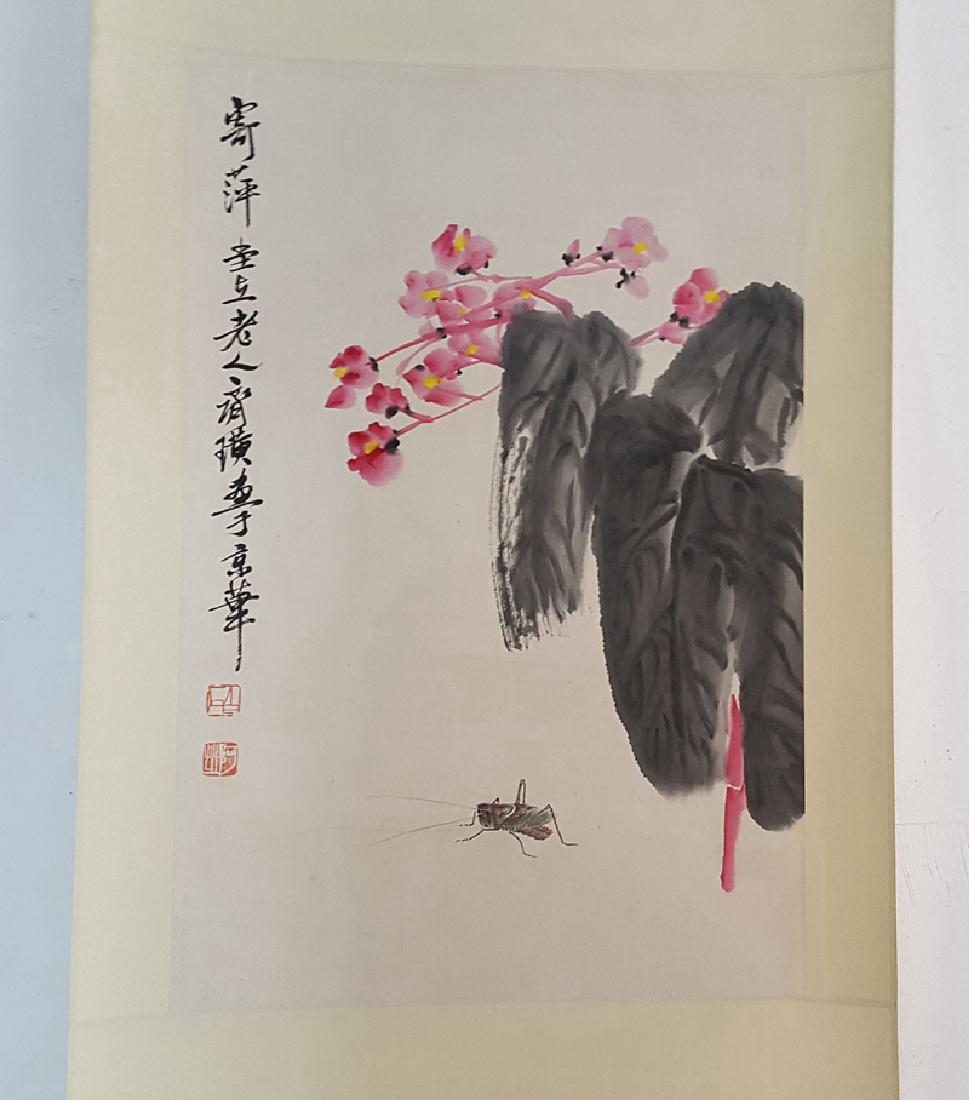 寄萍堂上老人齊璜畫于京華